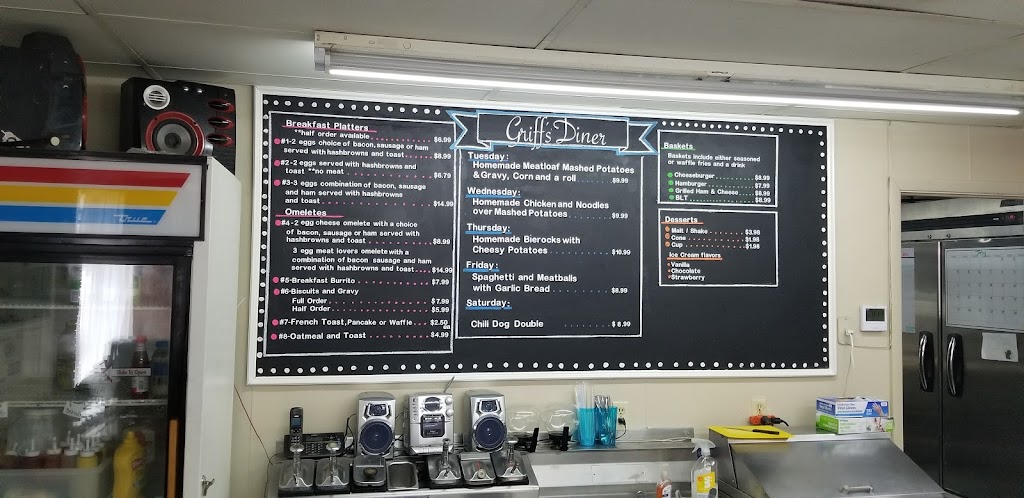 Griff's Diner
Breakfast Platters
**half order available . . . . . . . . . . . . $6.99
#1-2 eggs choice of bacon, sausage or ham
served with hashbrowns and toast . . . . $8.99
#2-2 eggs served with hashbrowns and
toast **no meat . . . . . . . . . . . . . . . . $6.79
#3-3 eggs combination of bacon, sausage
and ham served with hashbrowns
and toast . . . . . . . . . . . . . . . . . . . . $14.99
Omeletes
#4-2 egg cheese omelete with a choice
of bacon, sausage or ham served with
hashbrowns and toast . . . . . . . . . . . . $8.99
3 egg meat lovers omelete with a
combination of bacon sausage and ham
served with hashbrowns and toast . . . . $14.99
#5-Breakfast Burrito . . . . . . . . . . . . . $7.99
#6-Biscuits and Gravy
Full Order . . . . . . . . . . . . . . . . . . . $7.99
Half Order . . . . . . . . . . . . . . . . . . . $5.99
#7-French Toast, Pancake or Waffle . . . $2.50
ea
#8-Oatmeal and Toast . . . . . . . . . . . . $4.99
Tuesday:
Homemade Meatloaf Mashed Potatoes
& Gravy, Corn and a roll . . . . . . . . $9.99
Wednesday:
Homemade Chicken and Noodles
over Mashed Potatoes . . . . . . . . . $9.99
Thursday:
Homemade Bierocks with
Cheesy Potatoes . . . . . . . . . . . . . $10.99
Friday:
Spaghetti and Meatballs
with Garlic Bread . . . . . . . . . . . . $8.99
Saturday:
Chili Dog Double . . . . . . . . $8.99
Baskets
Baskets include either seasoned
or waffle fries and a drink
Cheeseburger . . . . . . . . . . $8.99
Hamburger . . . . . . . . . . . . $7.99
Grilled Ham & Cheese . . . $8.99
BLT . . . . . . . . . . . . . . . . . $8.99
Desserts
Malt / Shake . . . . . . . . $3.98
Cone . . . . . . . . . . . . . . $1.98
Cup . . . . . . . . . . . . . . . $1.98
Ice Cream flavors
Vanilla
Chocolate
Strawberry
True